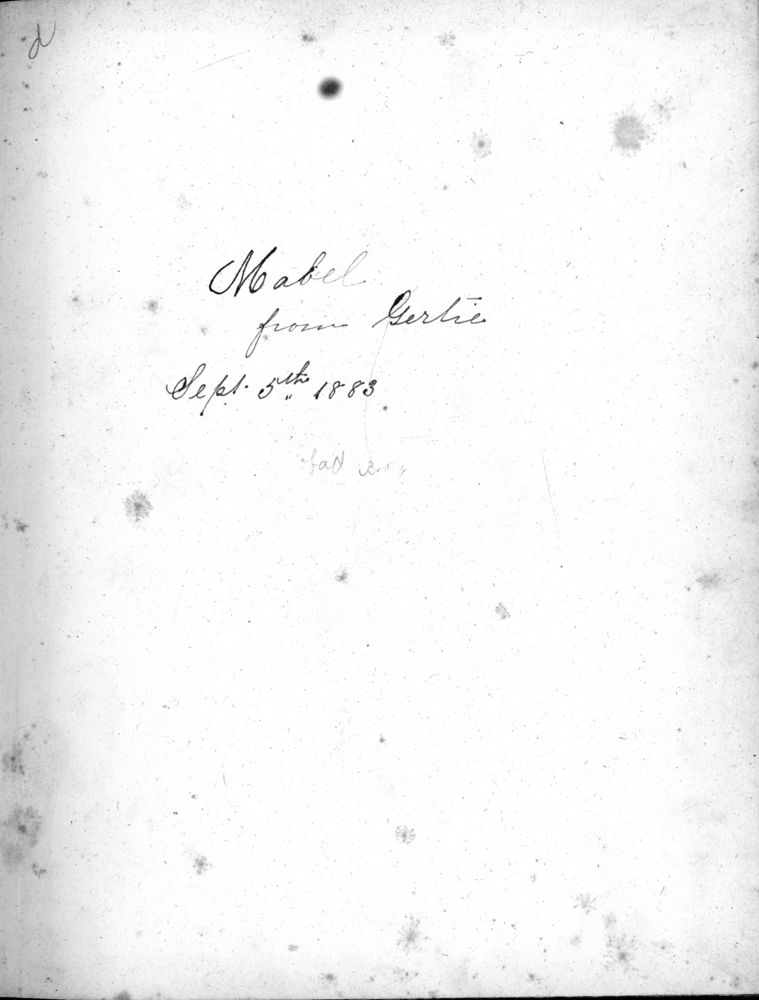 Mabel
from Gertie
Sept. 5th 1883